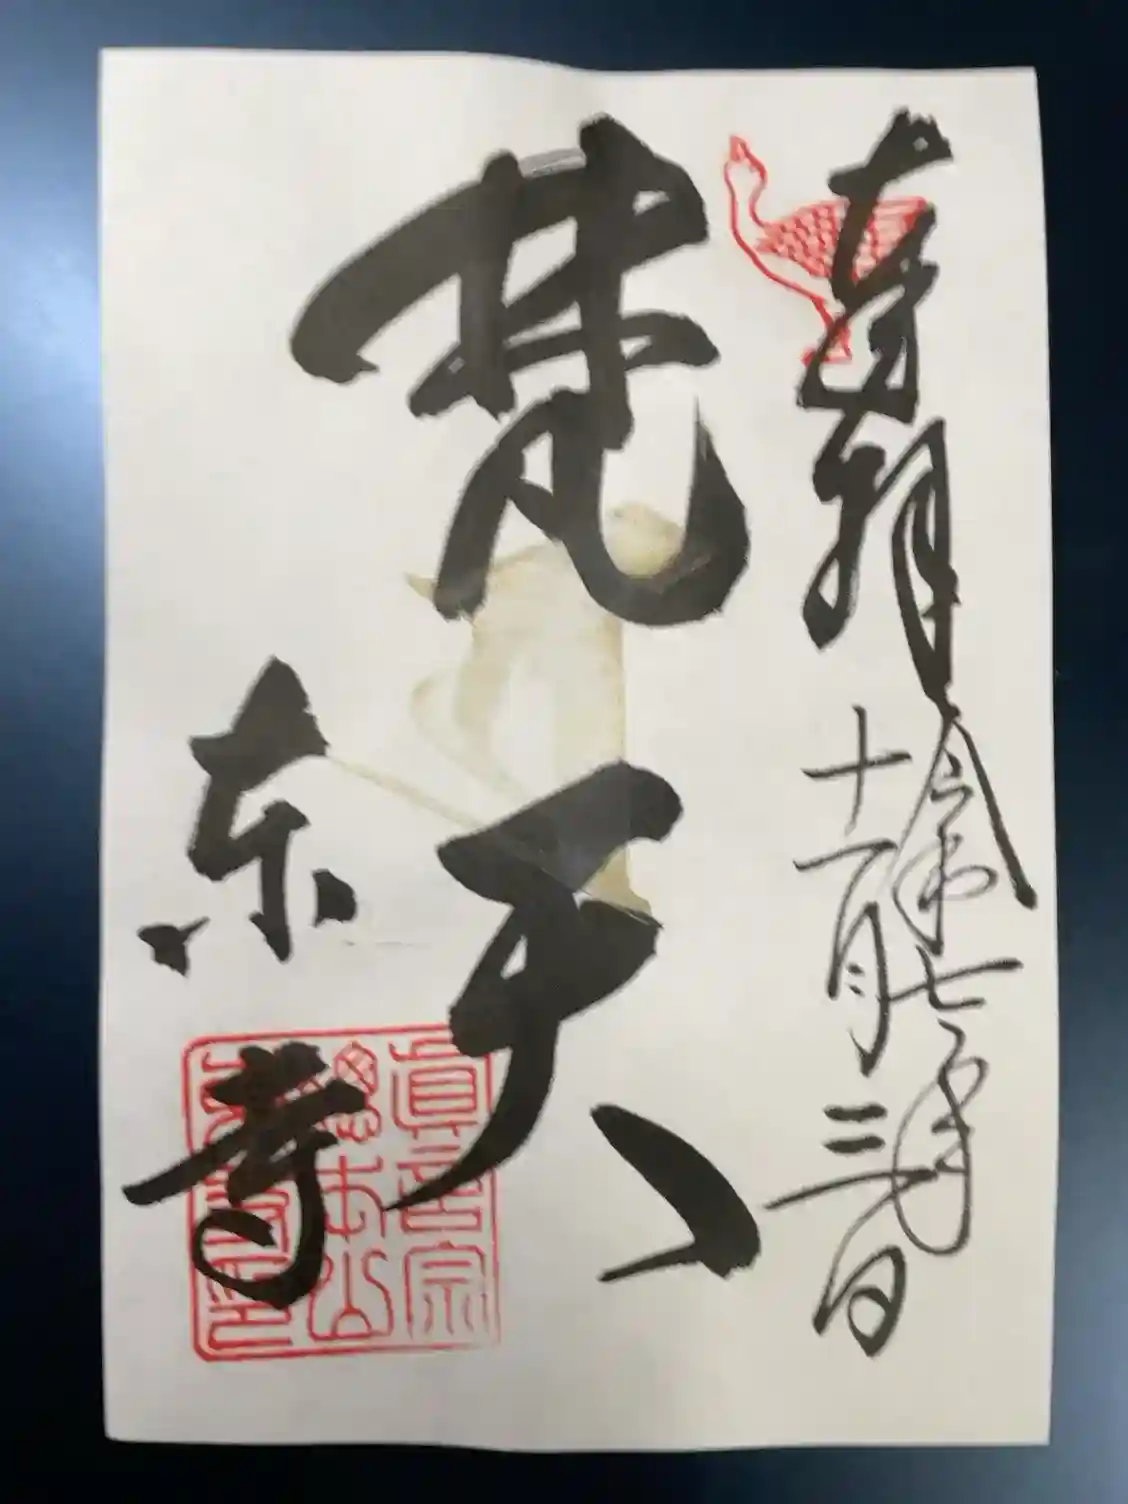 奉拝
令和七年
十一月三日
梵天
東寺
真言宗
総本山